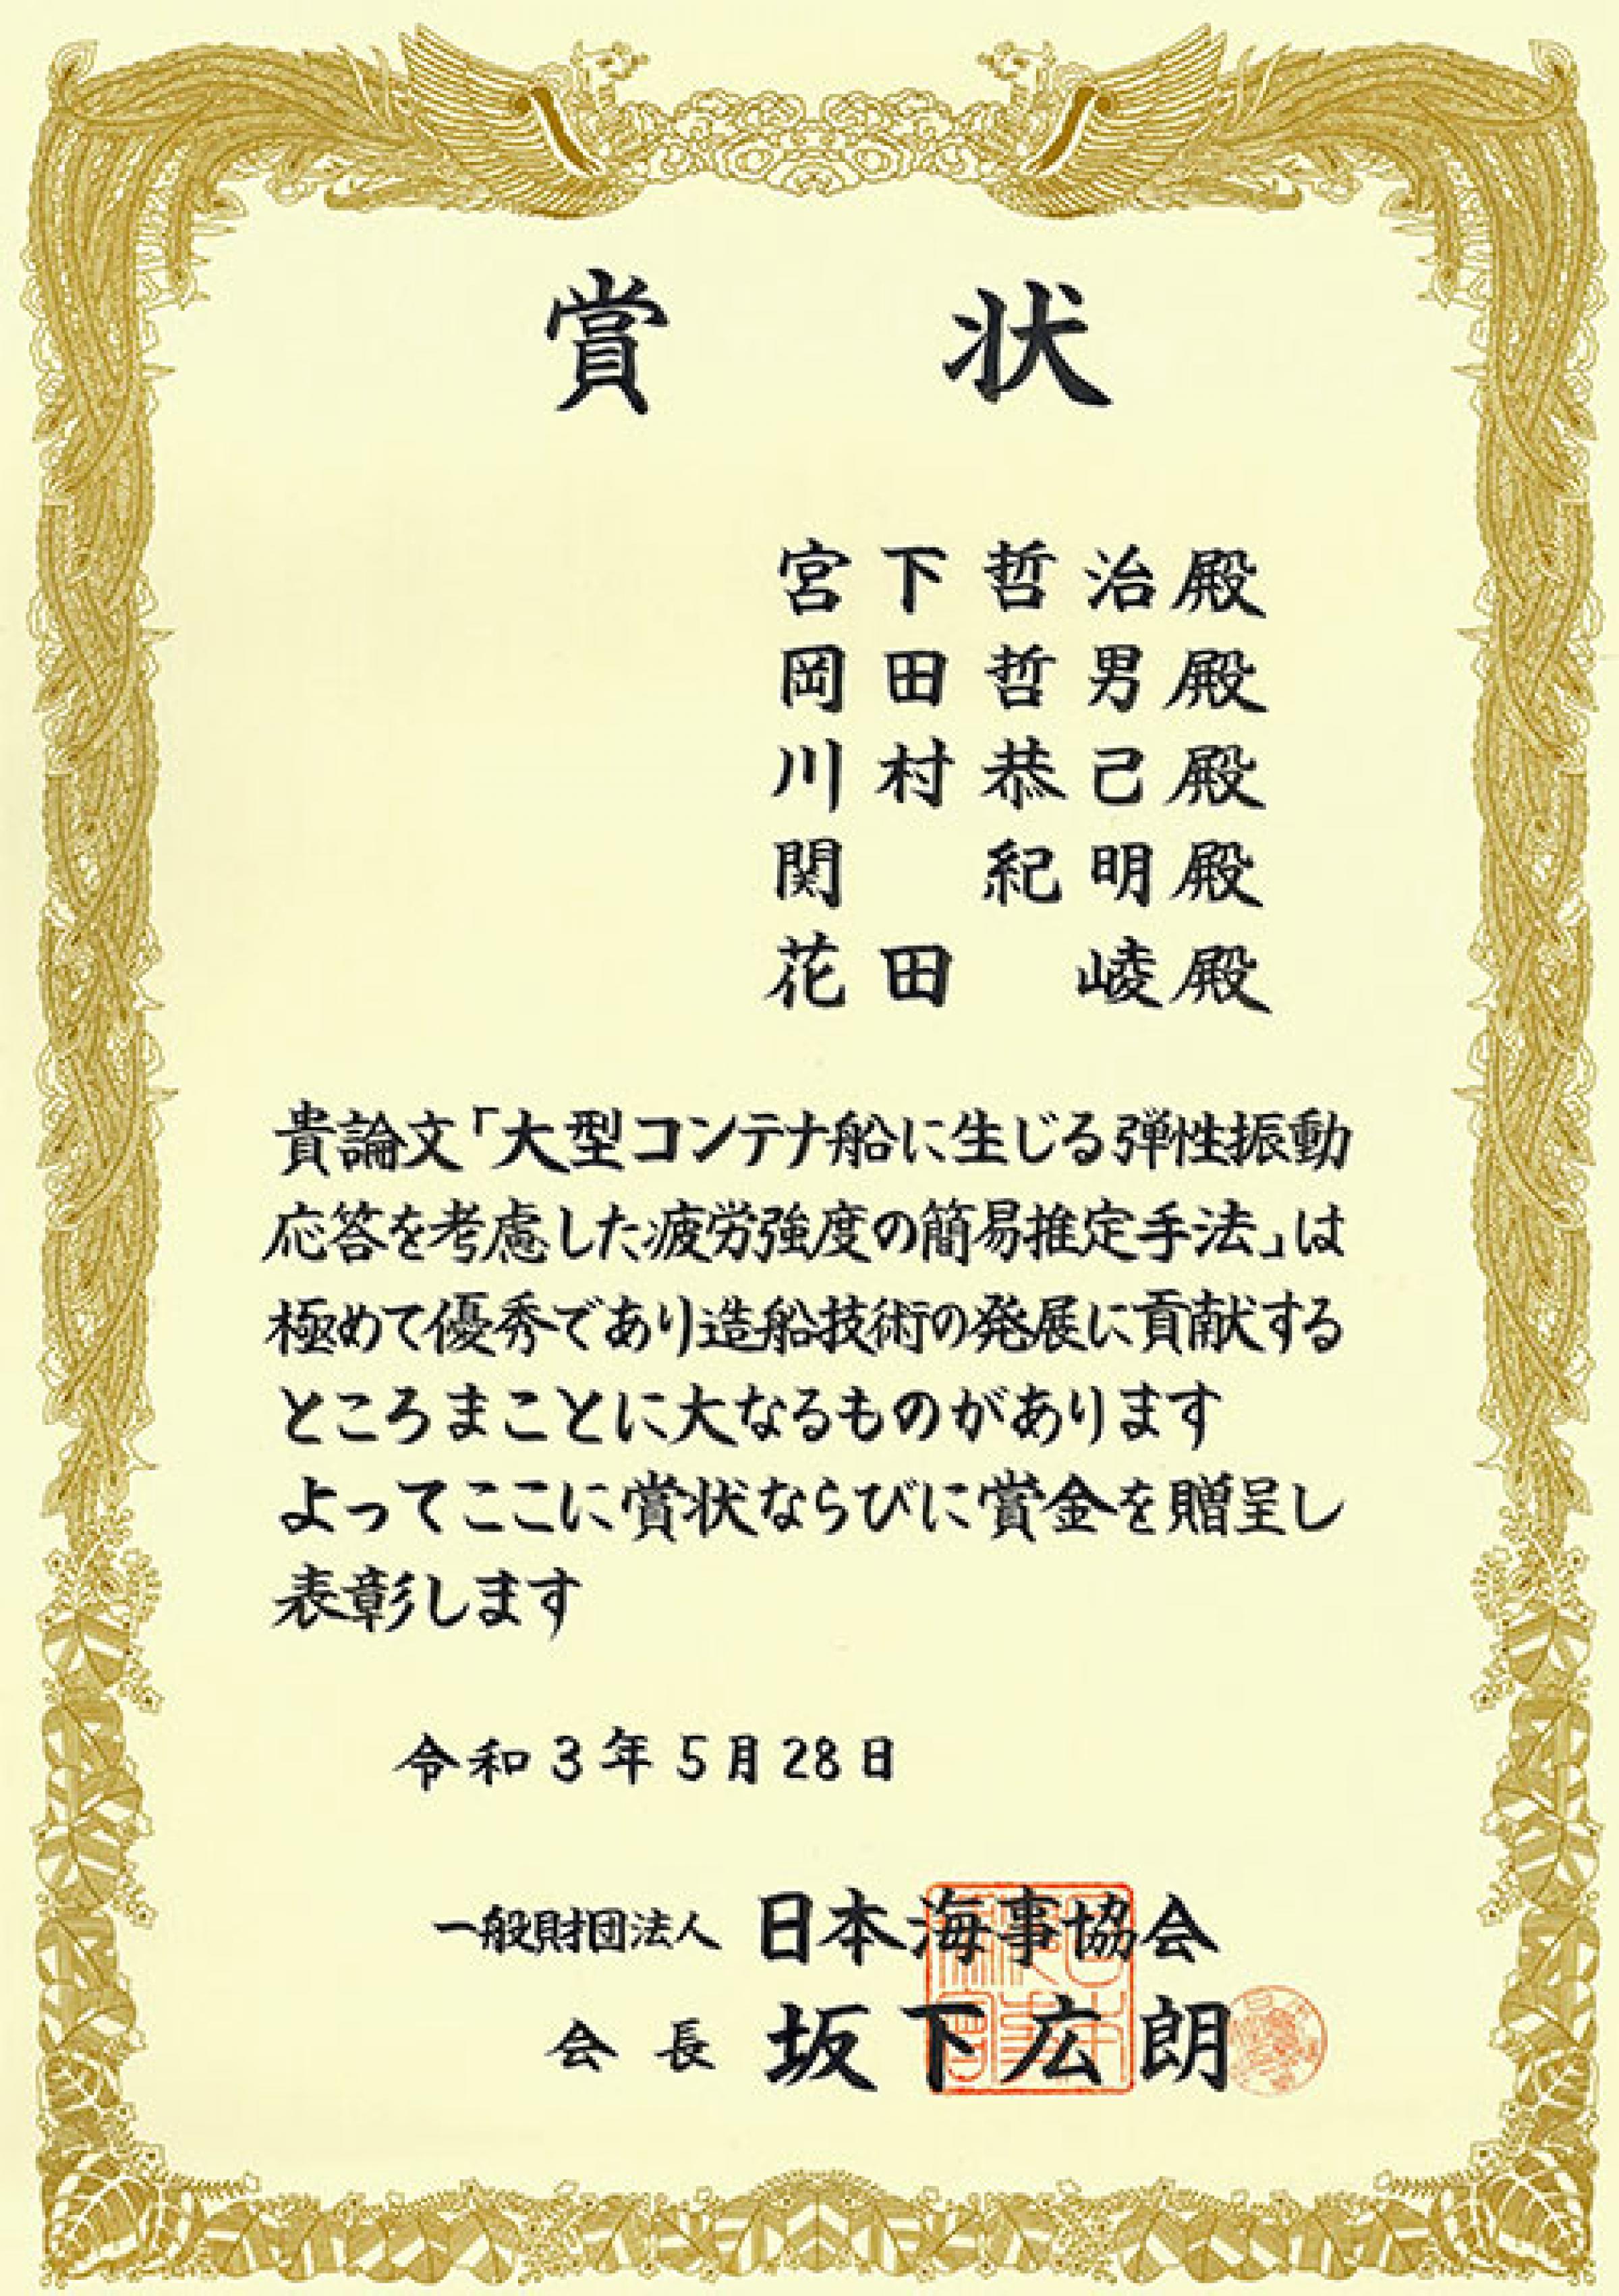 賞状
宮下哲治殿
岡田哲男殿
川村恭己殿
関 紀明殿
花田 崚殿
貴論文「大型コンテナ船に生じる弾性振動
応答を考慮した疲労強度の簡易推定手法」は
極めて優秀であり造船技術の発展に貢献する
ところまことに大なるものがあります
よってここに賞状ならびに賞金を贈呈し
表彰します
令和3年5月28日
一般財団法人 日本海事協会
会長 坂下広朗